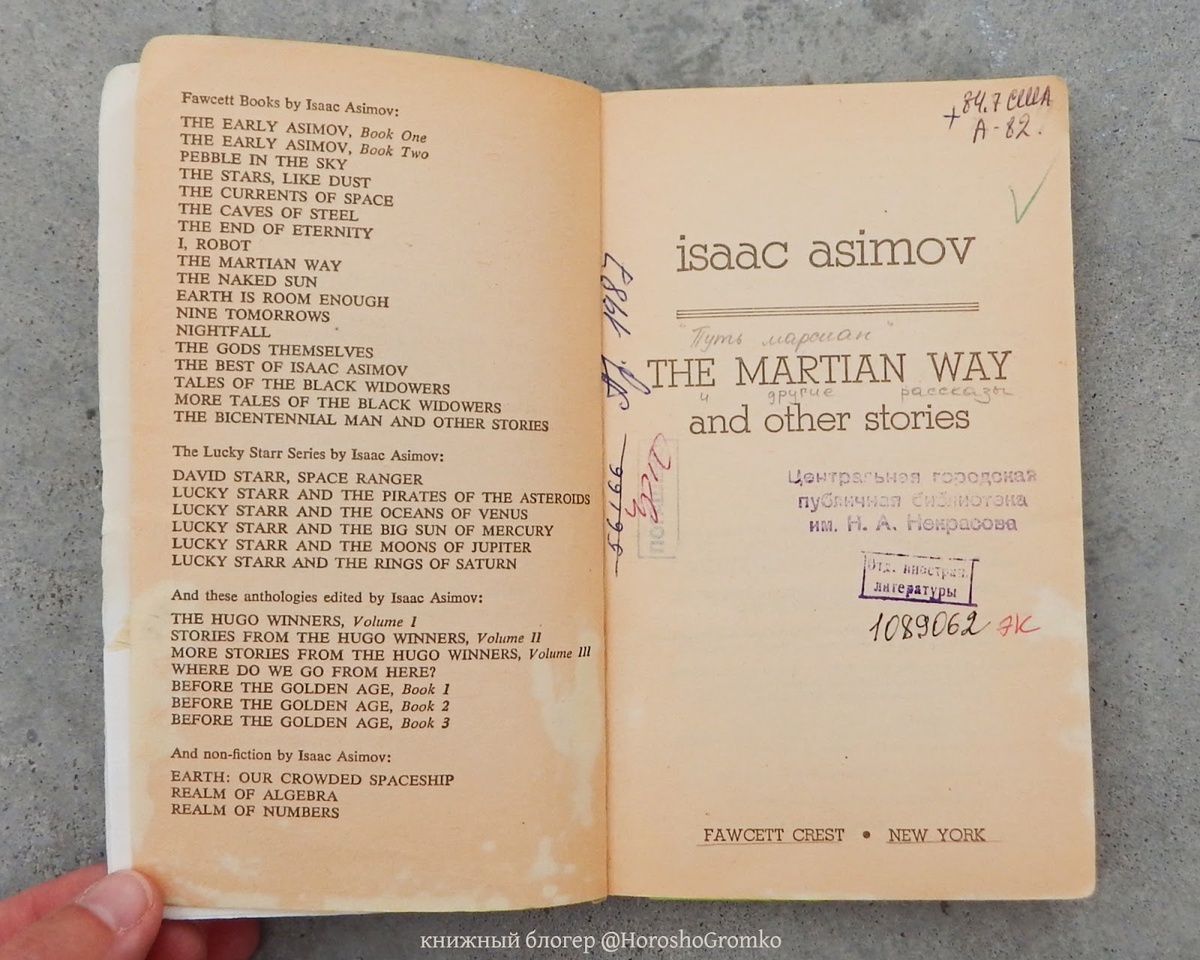 Fawcett Books by Isaac Asimov:
THE EARLY ASIMOV, Book One
THE EARLY ASIMOV, Book Two
PEBBLE IN THE SKY
THE STARS, LIKE DUST
THE CURRENTS OF SPACE
THE CAVES OF STEEL
THE END OF ETERNITY
I, ROBOT
THE MARTIAN WAY
THE NAKED SUN
EARTH IS ROOM ENOUGH
NINE TOMORROWS
NIGHTFALL
THE GODS THEMSELVES
THE BEST OF ISAAC ASIMOV
TALES OF THE BLACK WIDOWERS
MORE TALES OF THE BLACK WIDOWERS
THE BICENTENNIAL MAN AND OTHER STORIES
The Lucky Starr Series by Isaac Asimov:
DAVID STARR, SPACE RANGER
LUCKY STARR AND THE PIRATES OF THE ASTEROIDS
LUCKY STARR AND THE OCEANS OF VENUS
LUCKY STARR AND THE BIG SUN OF MERCURY
LUCKY STARR AND THE MOONS OF JUPITER
LUCKY STARR AND THE RINGS OF SATURN
And these anthologies edited by Isaac Asimov:
THE HUGO WINNERS, Volume I
STORIES FROM THE HUGO WINNERS, Volume II
MORE STORIES FROM THE HUGO WINNERS, Volume III
WHERE DO WE GO FROM HERE?
BEFORE THE GOLDEN AGE, Book 1
BEFORE THE GOLDEN AGE, Book 2
BEFORE THE GOLDEN AGE, Book 3
And non-fiction by Isaac Asimov:
EARTH: OUR CROWDED SPACESHIP
REALM OF ALGEBRA
REALM OF NUMBERS
+84.7 США
А-82.
isaac asimov
"Путь марсиан"
THE MARTIAN WAY
и другие рассказы
and other stories
56166
1987
Центральная городская
публичная библиотека
им. Н. А. Некрасова
Отд. иностран.
литературы
1089062 ЭК
FAWCETT CREST • NEW YORK
книжный блогер @HoroshoGromko